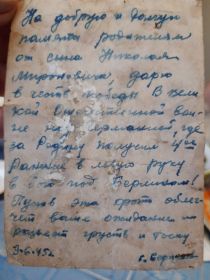 На добрую и долгую
память родителям
от сына Николая
Мироновича, дарю
в честь победы в Вели
кой Отечественной вой-
не над Германией, где
за Родину получил 4ое
Ранение в левую руку
в под Берлином!
Пусть эта фото облег-
чит ваше ожидание и
развеет грусть и тоску
3-6-45г.
г. Берлин